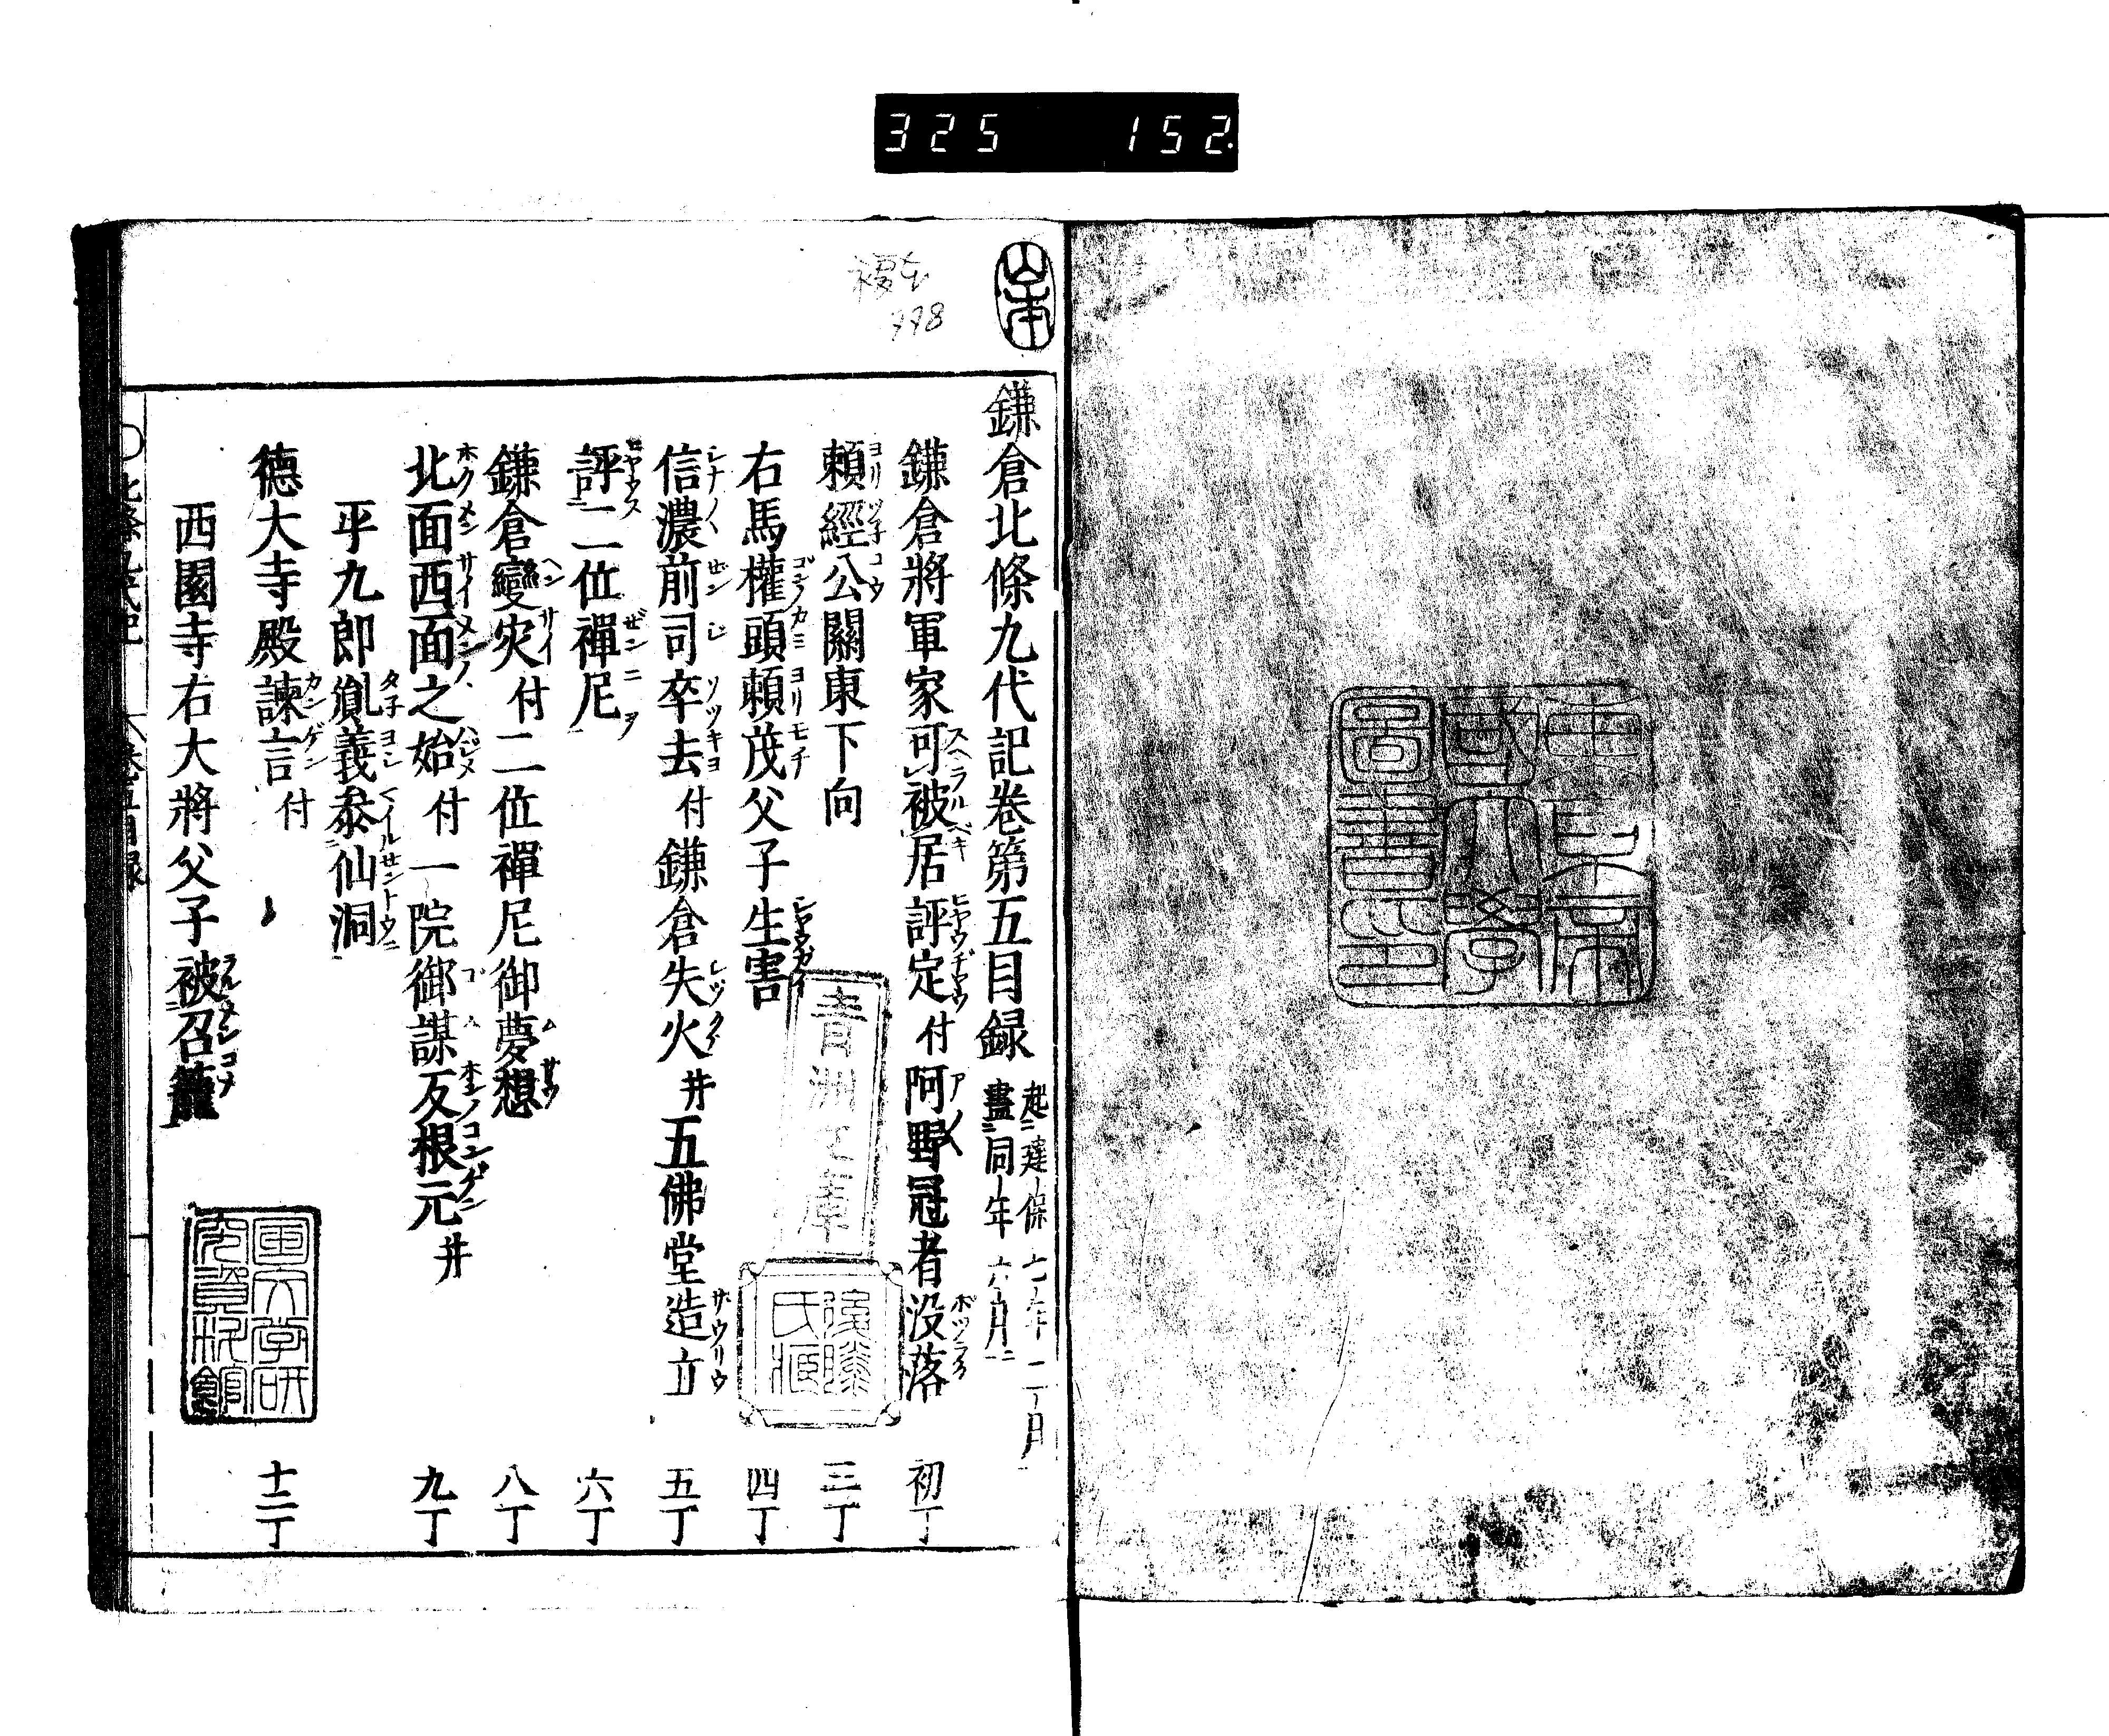 325 152
鎌倉北條九代記卷第五目録 起ニ建保七年二月 盡ニ同年六月ニ
鎌倉將軍家可被居評定付阿野冠者没落 初丁
頼經公關東下向 三丁
右馬權頭頼茂父子生害 四丁
信濃前司卒去付鎌倉失火井五佛堂造立 五丁
評二位禪尼 六丁
鎌倉變灾付二位禪尼御夢想 八丁
北面西面之始付一院御謀反根元井 九丁
平九郎胤義參仙洞
德大寺殿諫言付 十二丁
西園寺右大將父子被召籠
東京帝國大學圖書之印
青洲文庫
國文學研究資料館